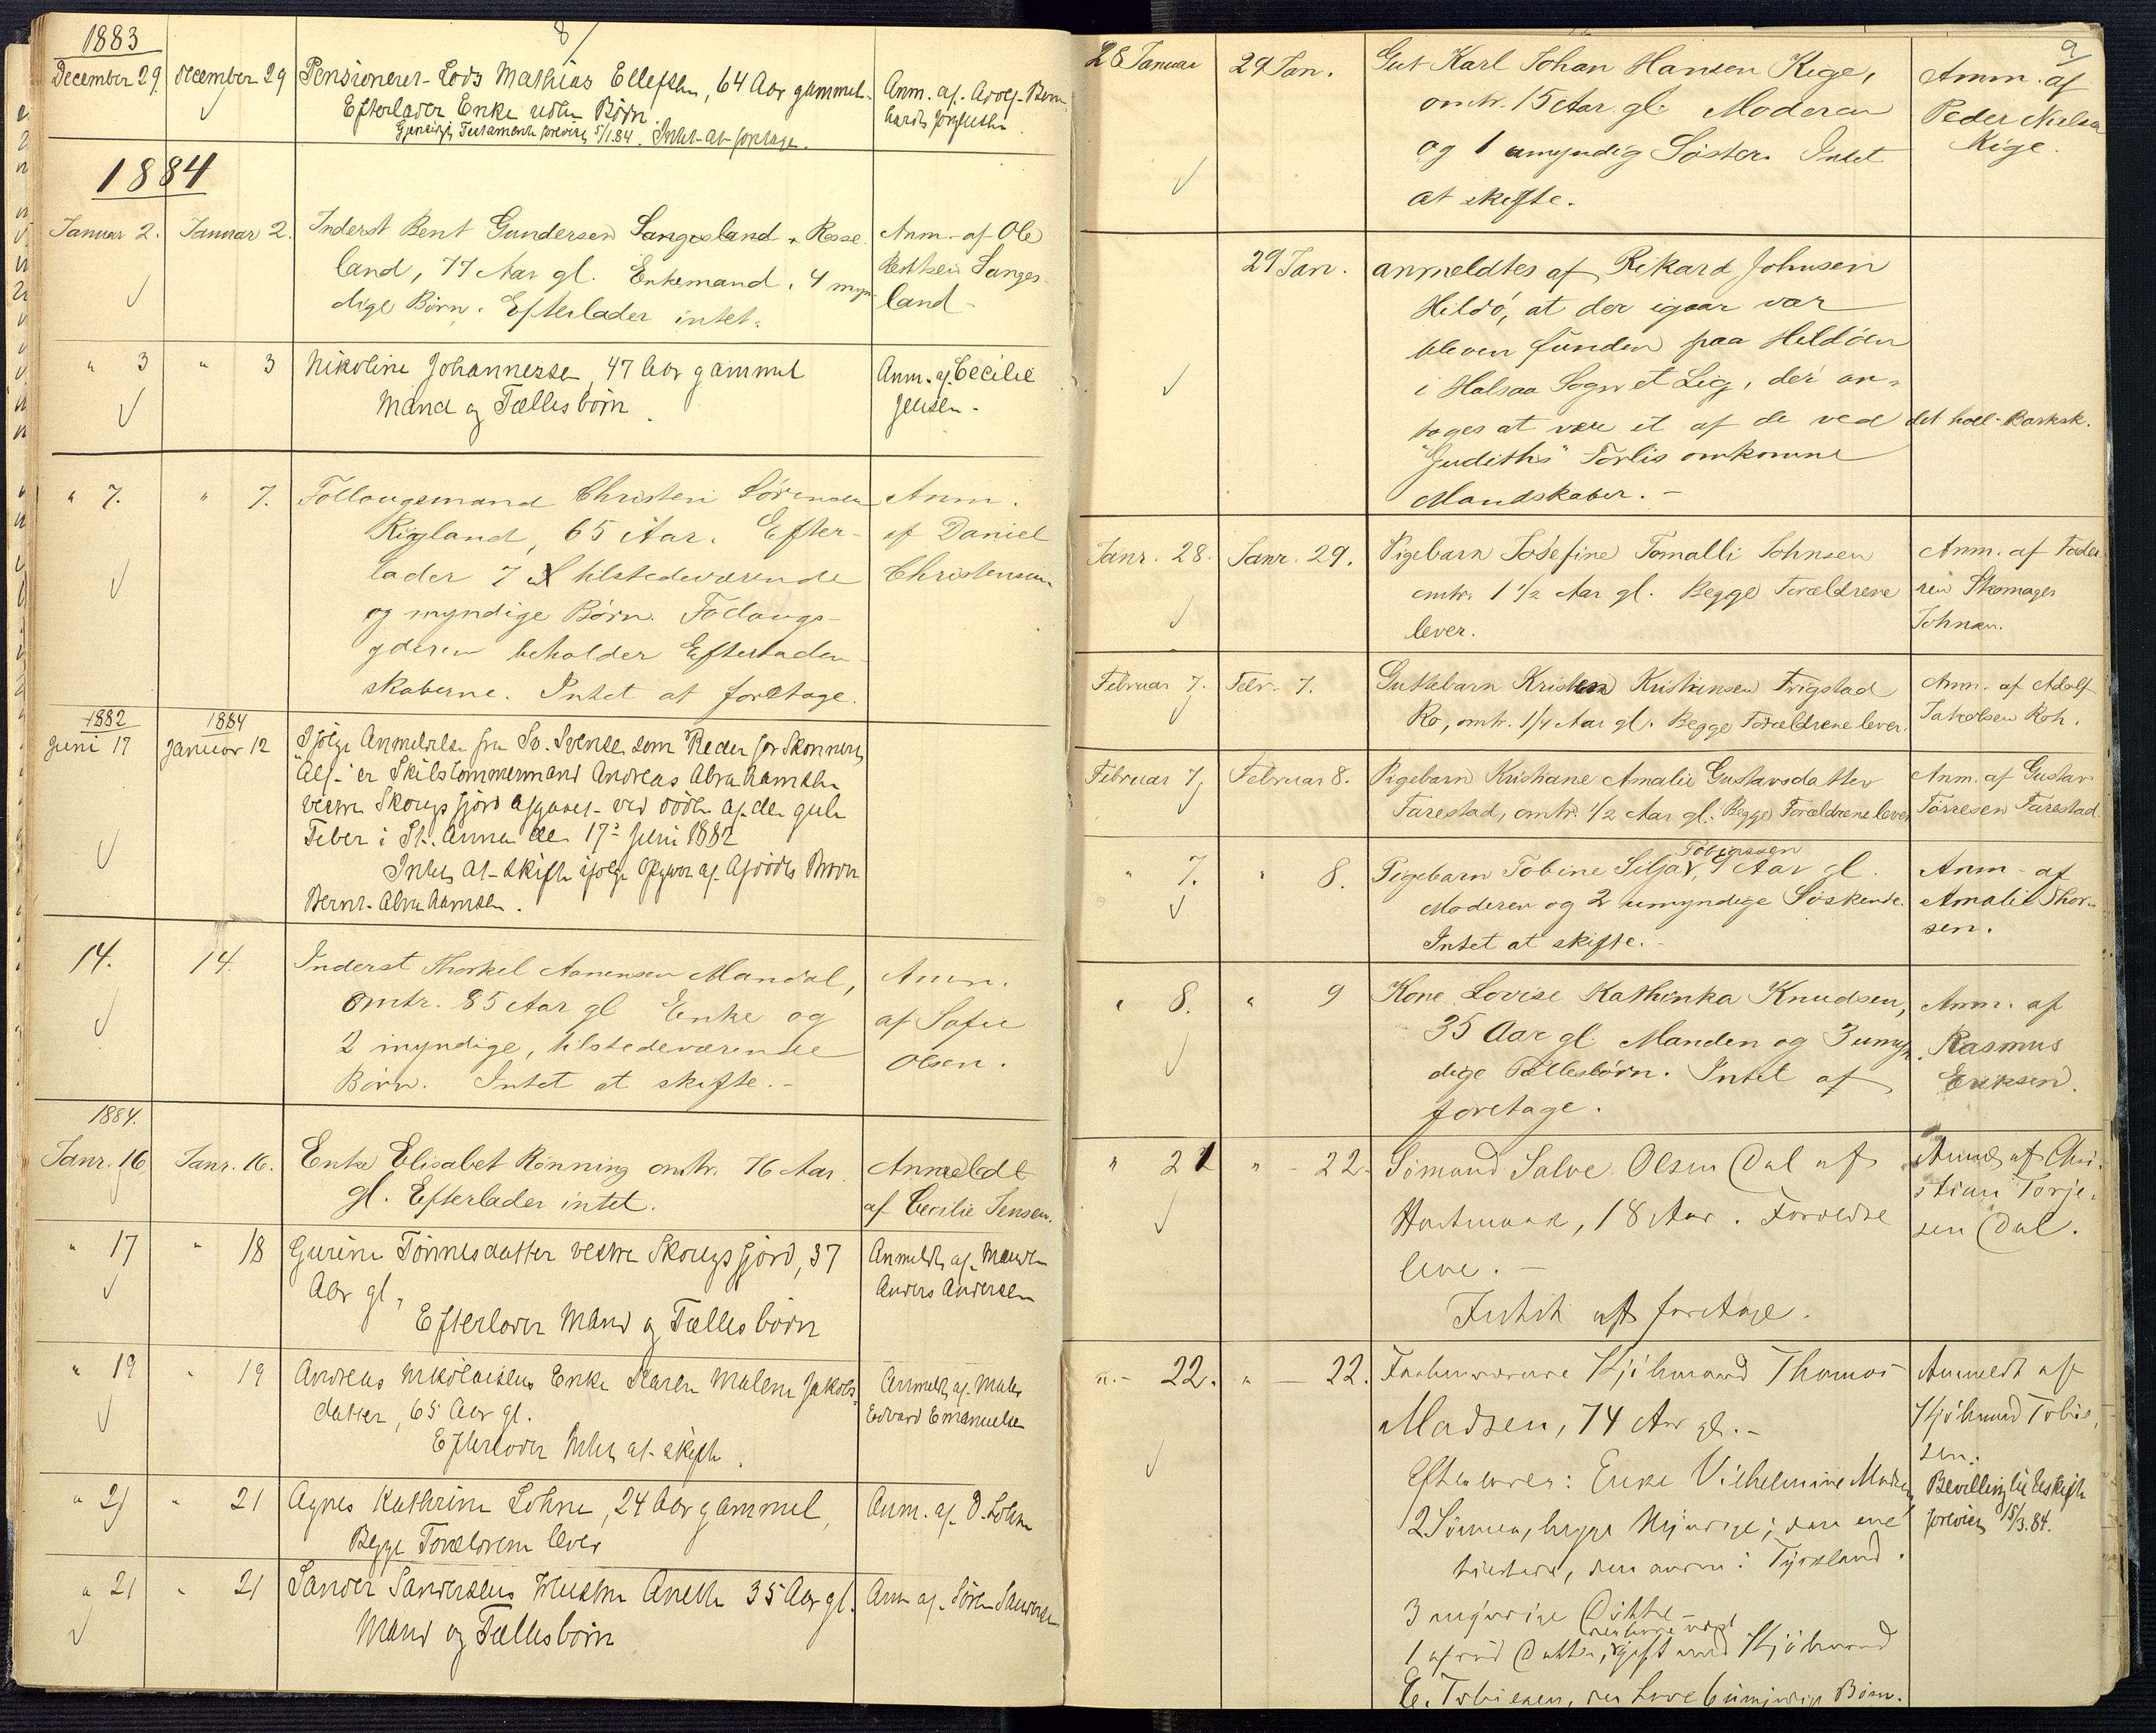 8/
1883
December 29. December 29 Pensioneret Lods Mathias Ellefsen, 64 Aar gammel. Anm. af Adolf Bern
Efterlader Enke uden Børn. hardt
Gjensidigt Testamente forevist 5/1.84. Intet at foretage.
1884
Januar 2. Januar 2. Inderst Bent Gundersen Langesland, Rosse Anm. af Ole
land, 77 Aar gl. Enkemand. 4 myn Langes
dige Børn. Efterlader intet. land
" 3 " 3 Nikoline Johannessen, 47 Aar gammel Anm. af Cecilie
Mand og Fællesbørn. Jensen.
" 7. " 7. Follaugemand Christen Sørensen Anm.
Rigland, 65 Aar. Efter- af Daniel
lader 7 tilstedeværende Christensen
og myndige Børn. Follaugs-
yderen beholder Efterladen
skaberne. Intet at foretage.
1882 1884
Juni 17 Januar 12 Ifølge Anmeldelse fra Sv. Svensen som Reder for Skonnert
"Alf" er Skibstømmermand Andreas Abrahamsen
vestre Skougsfjord afgaaet ved døden af den gule
Feber i St. Anna den 17de Juni 1882
Intet at skifte ifølge Opgave af Afdødes Broder
Bernt Abrahamsen.
14. 14. Inderst Thorkel Aanensen Mandal, Anm.
omtr. 85 Aar gl Enke og af Sofie
2 myndige, tilstedeværende Olsen.
Børn. Intet at skifte.-
1884.
Janr. 16 Janr. 16. Enke Elisabet Rönning omtr. 76 Aar Anmeldt
gl. Efterlader intet. af Cecilie Jensen.
" 17 " 18 Gurine Tönnesdatter vestre Skougsfjord, 37 Anmeldt af Manden
Aar gl, Anders Andersen
Efterlader Mand og Fællesbørn
" 19 " 19 Andreas Nikolaisens Enke Karen Malene Jakobs Anmeldt af Maler
datter, 65 Aar gl. Edvard Emanuelsen
Efterlader Intet at skifte.
" 21 " 21 Agnes Kathrine Lohne, 24 Aar gammel, Anm. af D. Lohne
Begge Forældrene lever
" 21 " 21 Sander Sandersens Hustru Anethe 35 Aar gl. Anm af Sören Sandersen
Mand og Fællesbörn
9
28 Januar 29 Jan. Gut Karl Johan Hansen Kige, Anm. af
omtr. 15 Aar gl. Moderen Peder Nielsen
og 1 umyndig Søster. Intet Kige.
at skifte.
29 Jan. anmeldtes af Rikard Johnsen
Hildö, at der igaar var
bleven funden paa Hildöen
i Halsaa Sogn et Lig, der an-
tages at være et af de ved det holl. Barksk.
"Judiths" Forlis omkomne
Mandskaber.-
Janr. 28. Janr. 29. Pigebarn Josefine Tomalli Johnsen Anm. af Fade
omtr. 1 1/2 Aar gl. Begge Forældrene ren Skomager
lever. Johnsen.
Februar 7. Febr. 7. Guttebarn Kristen Kristiansen Frigstad Anm. af Adolf
Ro, omtr. 1/4 Aar gl. Begge Forældrene lever. Jakobsen Roh.
Februar 7, Februar 8. Pigebarn Kristiane Amalie Gustavsdatter Anm. af Gustav
Farestad, omtr. 1/2 Aar gl. Begge Forældrene lever Tørresen Farestad.
Tobiassen
" 7. " 8. Pigebarn Tobine Silja, 1 Aar gl. Anm. af
Moderen og 2 umyndige Søskende. Amalie Thor-
Intet at skifte.- sen.
" 8. " 9 Kone Lovise Kathinka Knudsen, Anm. af
35 Aar gl. Manden og 3 umyn Rasmus
dige Fællesbørn. Intet at Eriksen.
foretage.
" 21 " - 22. Sømand Salve Olsen Dal af Anm. af Chri-
Hartmark, 18 Aar. Forældre stian Torje-
leve.- sen Dal.
Intet att foretage.
" - 22. " - 22. Forhenværende Kjöbmand Thomas Anmeldt af
Madsen, 74 Aar gl.- Kjöbmand Tobia-
sen.
Efterlader: Enke Vilhelmine Madsen, Bevilling til Uskifte
2 Sønner, begge Myndige; den ene forevist 15/3.84.
den anden i Tyskland.
3 Døttre-
1 afdød Datter, gift med Kjöbmand
Tobiasen, der have 6 umyndige Børn.